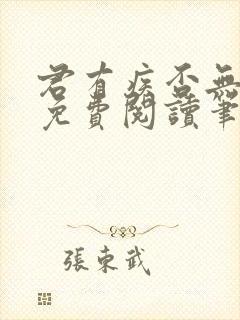 君有疾否無
免費閱讀筆
張東武